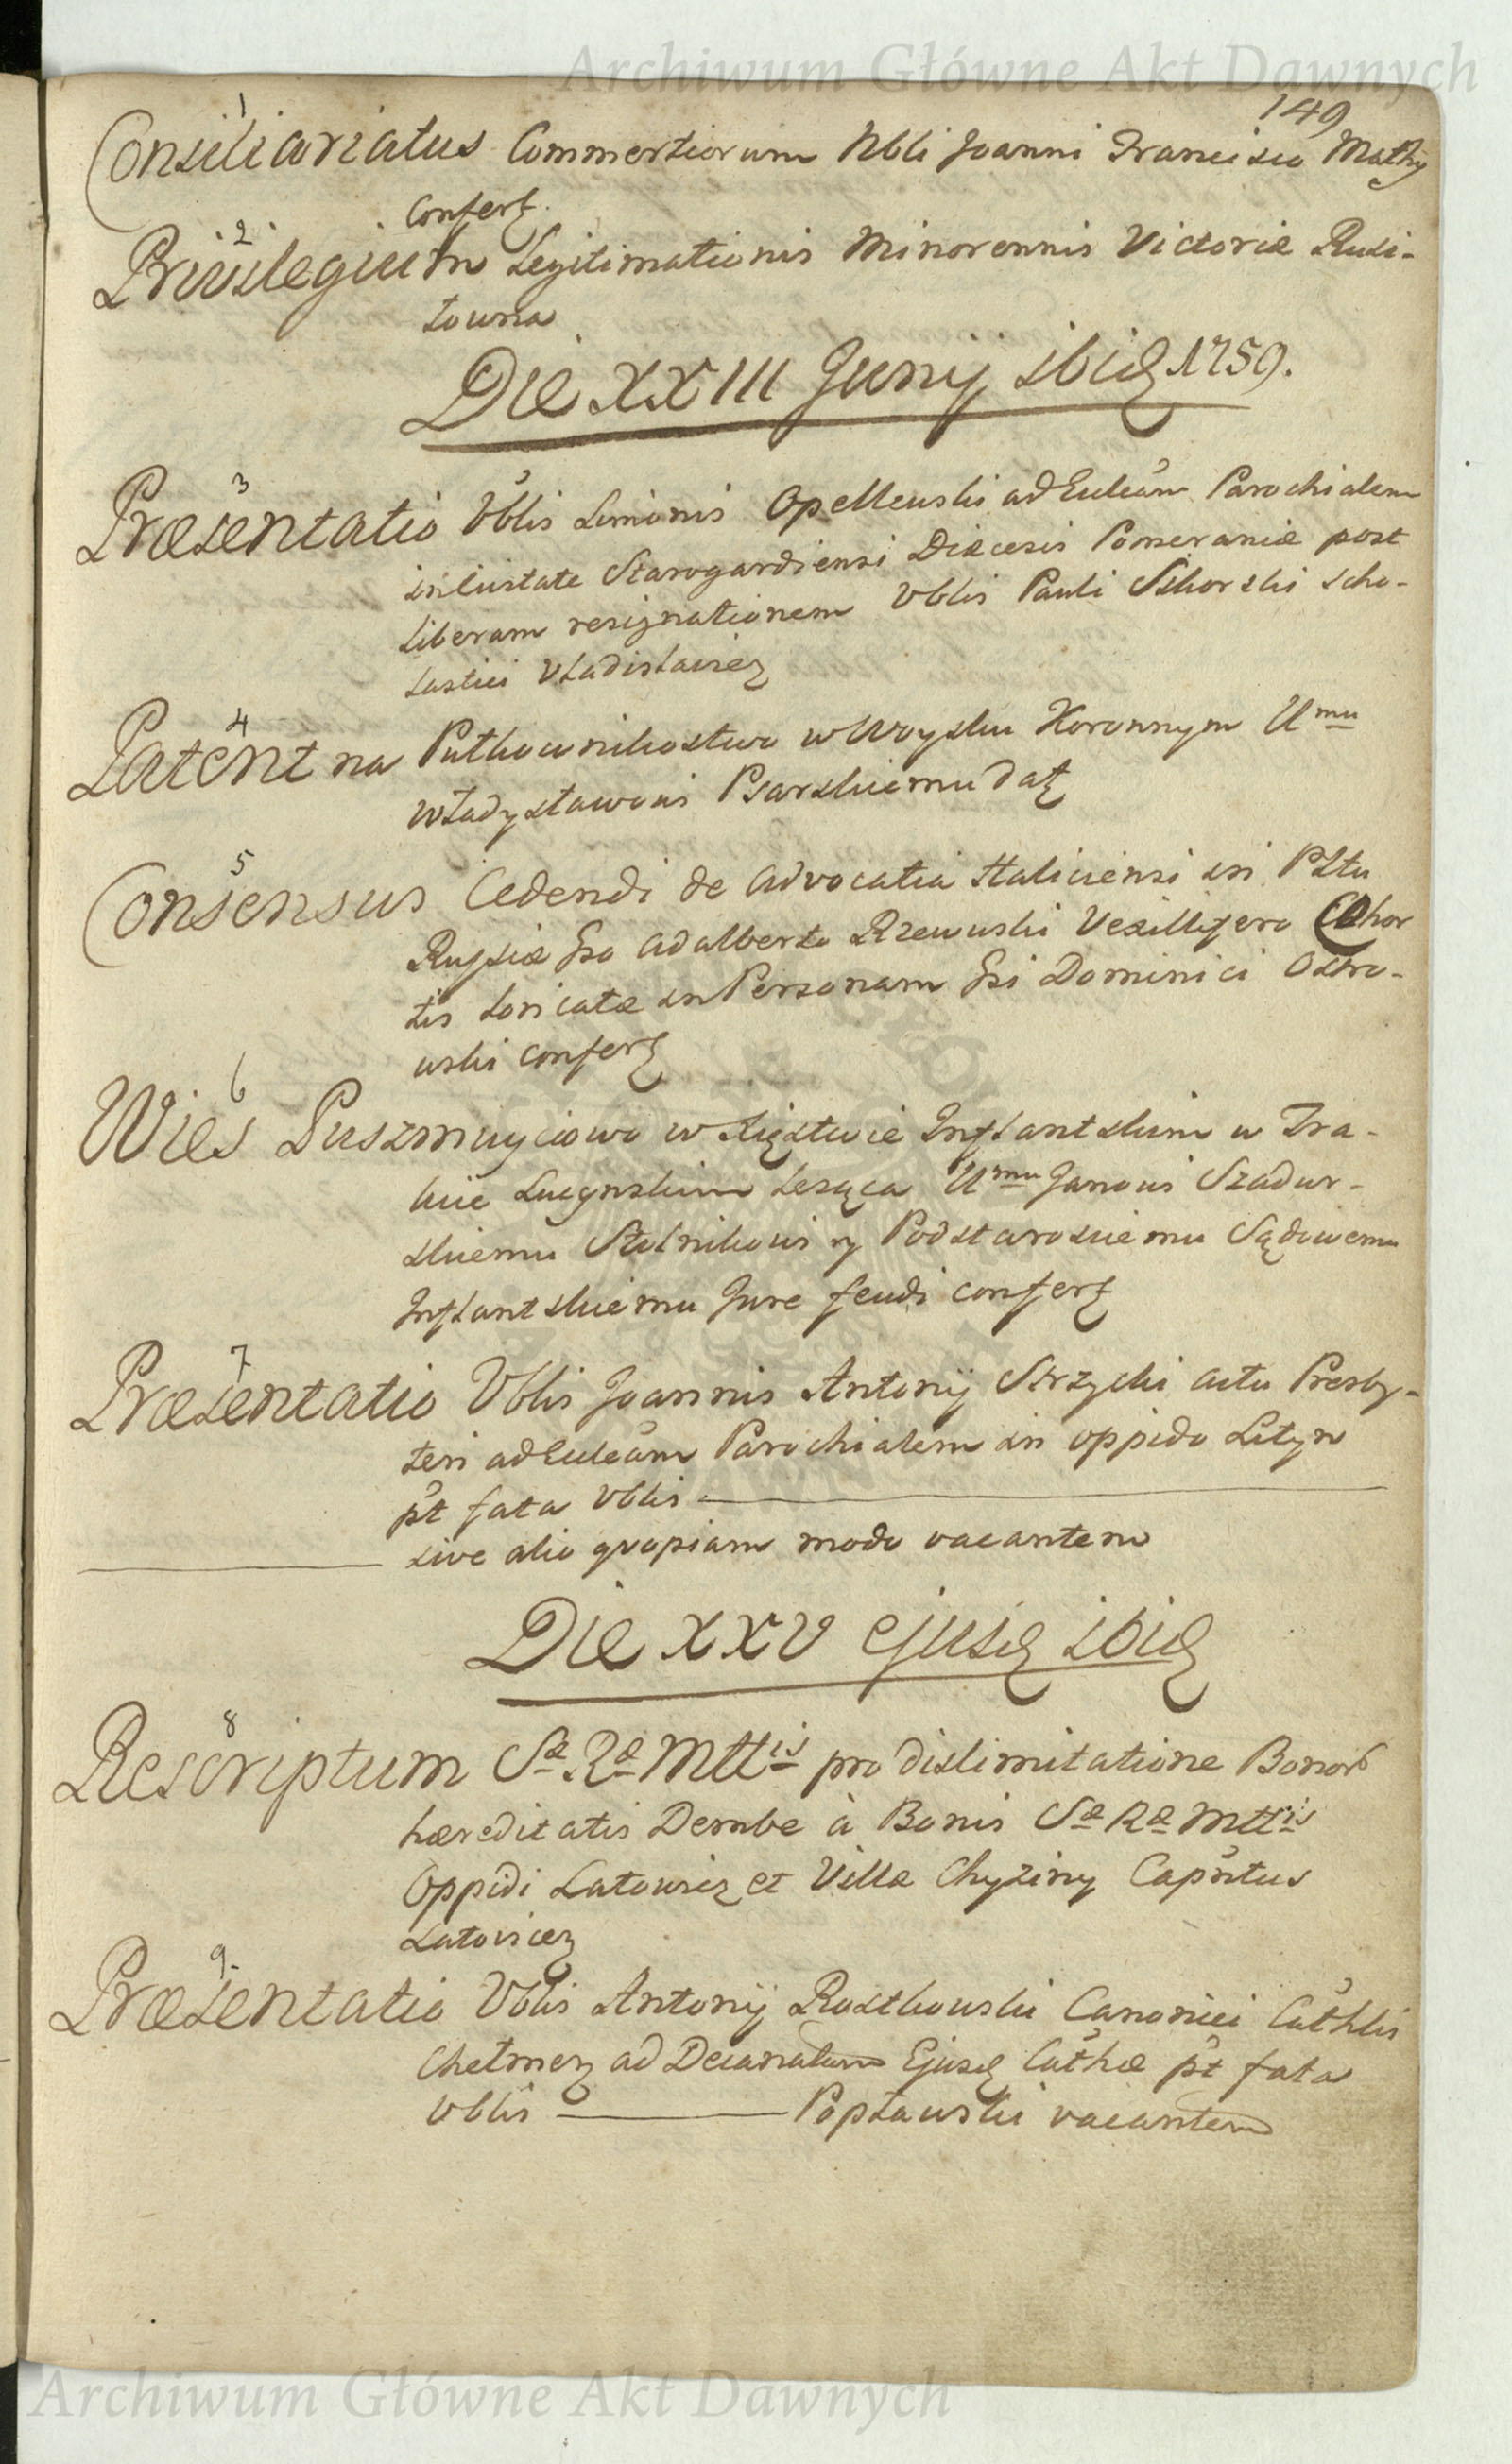 Archiwum Główne Akt Dawnych
149
1
Consiliariatus Commertiorum Nbli Joanni Francisco Mathy
Confert.
2
Privilegium Legitimationis Minorennis Victoriæ Rusi-
towna
Die XXIII Junij ibid 1759.
3
Præsentatio Vblis Simonis Opellewski ad Eccleam Parochialem
in Civitate Starogardiensi Diæcesis Pomeraniæ post
liberam resignationem Vblis Pauli Sikorski Scho-
lastici Vladislavien
4
Patent na Pułkownikostwo w Woysku Koronnym Umu
Władysławowi Psarskiemu dat
5
Consensus Cedendi de Advocatia Haliciensi in Pltu
Russiæ Gso Adalberto Rzewuski Vexillifero Cohor
tis Loricatæ in Personam Gsi Dominici Ostro-
wski confert
6
Wieś Puszmuyciowo w Xięstwie Inflantskim w Tra-
kcie Lucynskim leząca Umu Janowi Szadur-
skiemu Stolnikowi y Podstarosciemu Sądowemu
Inflantskiemu Jure feudi confert
7
Præsentatio Vblis Joannis Antonij Strzycki actu Presby-
teri ad Eccleam Parochialem in oppido Lityn
pt fata Vblis
sive alio quopiam modo vacantem
Die XXV ejusd ibid
8
Rescriptum Sæ Ræ Mttis pro dislimitatione Bonor
hæreditatis Dembe à Bonis Sæ Ræ Mttis
Oppidi Latowicz et Villæ Chyziny Capntus
Latovicen
9.
Præsentatio Vblis Antonij Rostkowski Canonici Cathlis
Chelmen ad Decanatum Ejusd Cathæ pt fata
Vblis Popławski vacantem
Archiwum Główne Akt Dawnych